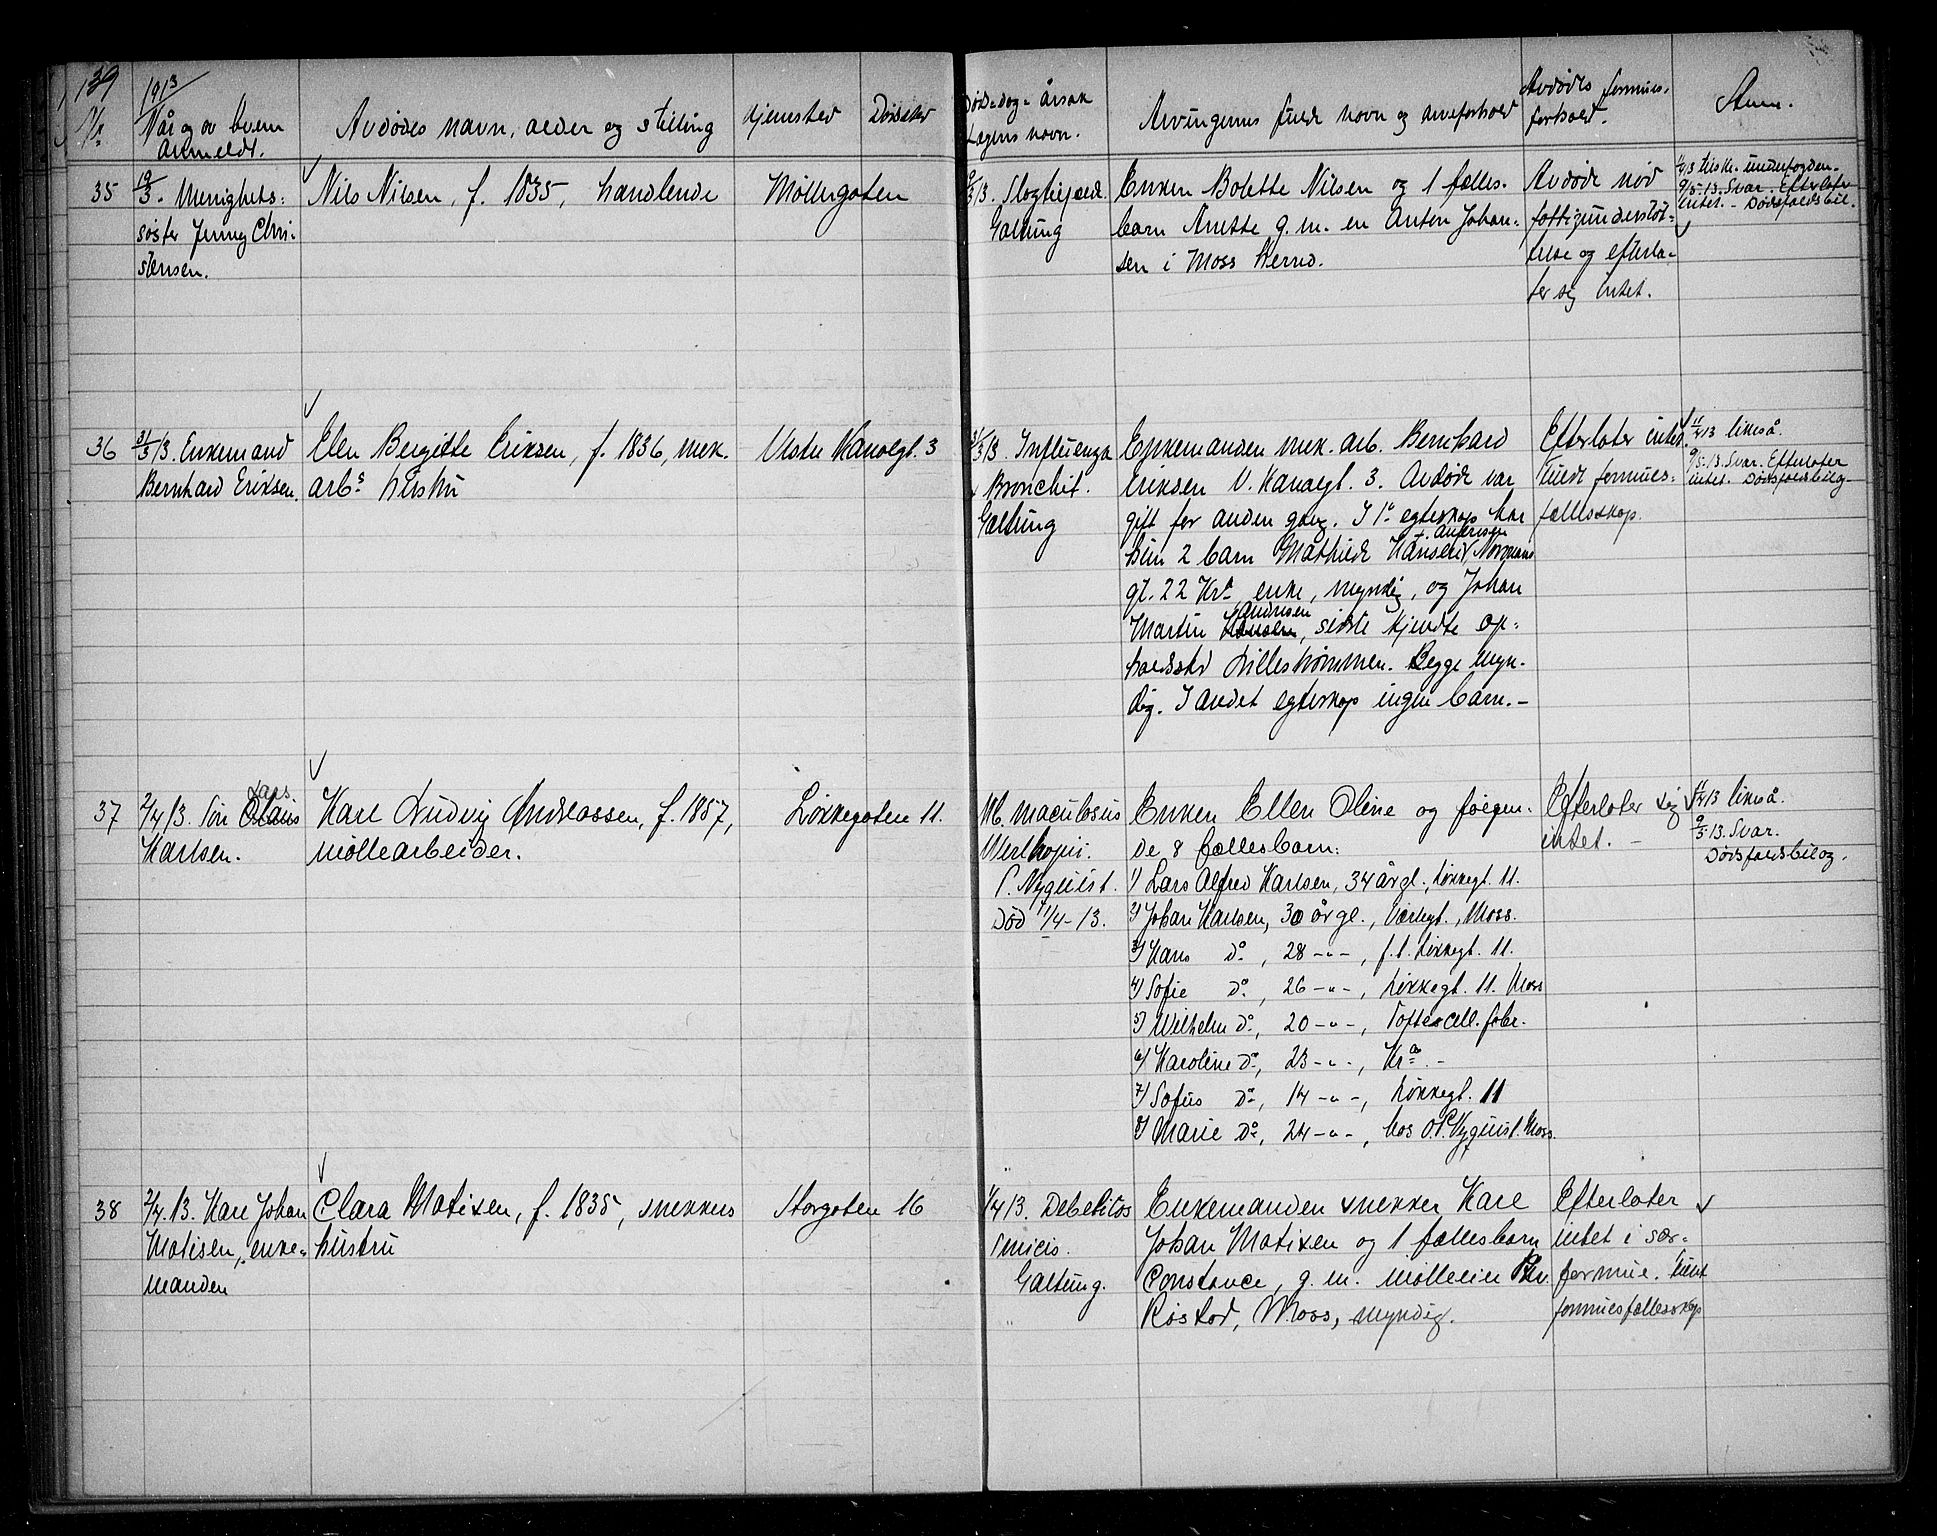 139
1913
Når og av hvem
anmeldt.
Avdødes navn, alder og stilling
Hjemsted
Dødssted
Døds-dag- årsak
Lægens navn.
Arvingernes fulde navn og arveforhold
Avdødes formues-
forhold.
Anm.
35
19/3. Menighets-
søster Jenny Chri-
stensen.
Nils Nilsen, f. 1835, handlende
Møllergaten
/3 13.
Galtung
Enken Bolette Nilsen og 1 fælles-
barn Anette g. m. en Anton Johan-
sen i Moss herred.
Avdøde nød
fattigunderstøt-
telse og efterla-
ter sig intet.
9/5.13. Svar. Efterlater
intet. - Dødsfaldsbil.
36
31/3 13. Enkemand
Bernhard Eriksen.
Elen Bergitte Eriksen, f. 1836, mek.
arb.s hustru
Vestre Kanalgt. 3
31/3 13. Influenza
+ Bronchit.
Galtung
Enkemanden mek. arb. Bernhard
Eriksen V. Kanalgt. 3. Avdøde var
gift for anden gang. I 1ste egteskap har
hun 2 barn Mathilde Hansen f. Andersen, Normans
gt. 22 Kra enke, myndig, og Johan
Martin Hansen Andresen, sidste kjendte op-
holdssted Lillestrømmen. Begge myn-
dig. I andet egteskap ingen barn. -
Efterlater intet.
Fuldt formues-
fællesskap.
/4 13 likeså.
9/5.13. Svar. Efterlater
intet. Dødsfaldsbilag-
37
2/4 13. Søn Claus Lars
Karlsen.
Karl Ludvig Andreassen, f. 1857,
møllearbeider.
Løkkegaten 11.
M. maculosus
Werlhopii.
P. Nyquist.
Død 1/4-13.
Enken Ellen Oline og følgen-
de 8 fællesbarn:
1) Lars Alfred Karlsen, 34 år gl., Løkkegt. 11.
2) Johan Karlsen, 30 år gl., Værlegt., Moss.
3) Hans do, 28 -"-, f. t. Løkkegt. 11.
4) Sofie do, 26 -"-, Løkkegt. 11. Moss
5) Wilhelm do, 20 -"-, Toftes cell. fabr.
6) Karoline do, 23 -"-, Kra -
7) Sofus do, 14 -"-, Løkkegt. 11
8) Marie do, 24 -"-, hos O. P. Nyquist. Moss.
Efterlater sig
intet. -
/4 13 likeså.
9/5.13. Svar.
Dødsfaldsbilag.
38
2/4.13. Karl Johan
Matisen, enke-
manden
Clara Matisen, f. 1835, snekkers
hustru
Storgaten 16
1/4 13. Debilitas
senilis.
Galtung.
Enkemanden snekker Karl
Johan Matisen og 1 fællesbarn
Constance, g. m. mølleeier
Røstad, Moss, myndig.
Efterlater
intet i sær-
formue. Fuldt
formuesfællesskap